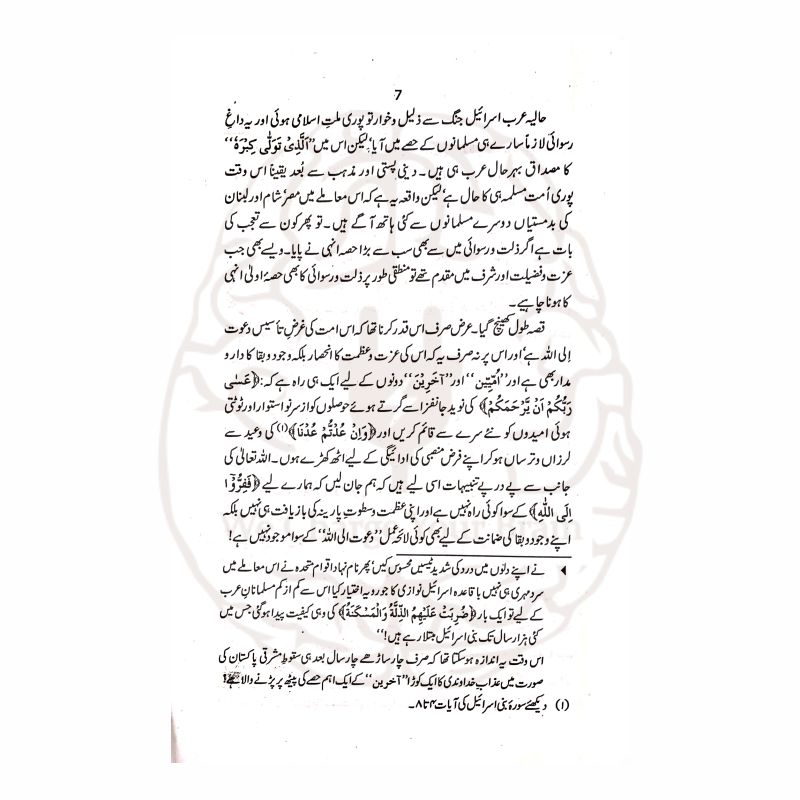 7
حالیہ عرب اسرائیل جنگ سے ذلیل و خوار تو پوری ملتِ اسلامی ہوئی اور یہ داغِ
رسوائی لازماً سارے ہی مسلمانوں کے حصے میں آیا' لیکن اس میں ''اَلَّذِیْ تَوَلّٰی کِبْرَہٗ''
کا مصداق بہرحال عرب ہی ہیں۔ دینی پستی اور مذہب سے بُعد یقیناً اس وقت
پوری اُمت مسلمہ ہی کا حال ہے' لیکن واقعہ یہ ہے کہ اس معاملے میں مصر' شام اور لبنان
کی بدمستیاں دوسرے مسلمانوں سے کئی ہاتھ آگے ہیں۔ تو پھر کون سے تعجب کی
بات ہے اگر ذلت و رسوائی میں سے بھی سب سے بڑا حصہ انہی نے پایا۔ ویسے بھی جب
عزت و فضیلت اور شرف میں مقدم تھے تو منطقی طور پر ذلت و رسوائی کا بھی حصۂ اولیٰ انہی
کا ہونا چاہیے۔
قصہ طول کھینچ گیا۔ عرض صرف اس قدر کرنا تھا کہ اس امت کی غرضِ تأسیس دعوت
اِلی اللہ ہے' اور اس پر نہ صرف یہ کہ اس کی عزت و عظمت کا انحصار بلکہ وجود و بقا کا دار و
مدار بھی ہے اور ''اُمِّیّین'' اور ''آخَرِیْنَ'' دونوں کے لیے ایک ہی راہ ہے کہ: ﴿عَسٰی
رَبُّکُمْ اَنْ یَّرْحَمَکُمْ﴾ کی نوید جانفزا سے گرتے ہوئے حوصلوں کو از سرِ نو استوار اور ٹوٹتی
ہوئی امیدوں کو نئے سرے سے قائم کریں اور ﴿وَاِنْ عُدْتُّمْ عُدْنَا﴾(۱) کی وعید سے
لرزاں و ترساں ہو کر اپنے فرض منصبی کی ادائیگی کے لیے اٹھ کھڑے ہوں۔ اللہ تعالیٰ کی
جانب سے پے در پے تنبیہات اسی لیے ہیں کہ ہم جان لیں کہ ہمارے لیے ﴿فَفِرُّوْٓا
اِلَی اللّٰہِ﴾ کے سوا کوئی راہ نہیں ہے اور اپنی عظمت و سطوتِ پارینہ کی بازیافت ہی نہیں بلکہ
اپنے وجود و بقا کی ضمانت کے لیے بھی کوئی لائحہ عمل ''دعوت الی اللہ'' کے سوا موجود نہیں ہے!
◄ نے اپنے دلوں میں درد کی شدید ٹیسیں محسوس کیں' پھر نام نہاد اقوام متحدہ نے اس معاملے میں
سرد مہری ہی نہیں باقاعدہ اسرائیل نوازی کا جو رویہ اختیار کیا اس سے کم از کم مسلمانانِ عرب
کے لیے تو ایک بار ﴿ضُرِبَتْ عَلَیْھِمُ الذِّلَّۃُ وَالْمَسْکَنَۃُ﴾ کی وہی کیفیت پیدا ہو گئی جس میں
کئی ہزار سال تک بنی اسرائیل مبتلا رہے ہیں!''
اس وقت یہ اندازہ ہو سکتا تھا کہ صرف چار ساڑھے چار سال بعد ہی سقوطِ مشرقی پاکستان کی
صورت میں عذابِ خداوندی کا ایک کوڑا ''آخرین'' کے ایک اہم حصے کی پیٹھ پر پڑنے والا ہے!
(۱) دیکھئے سورۂ بنی اسرائیل کی آیات ۴ تا ۸۔